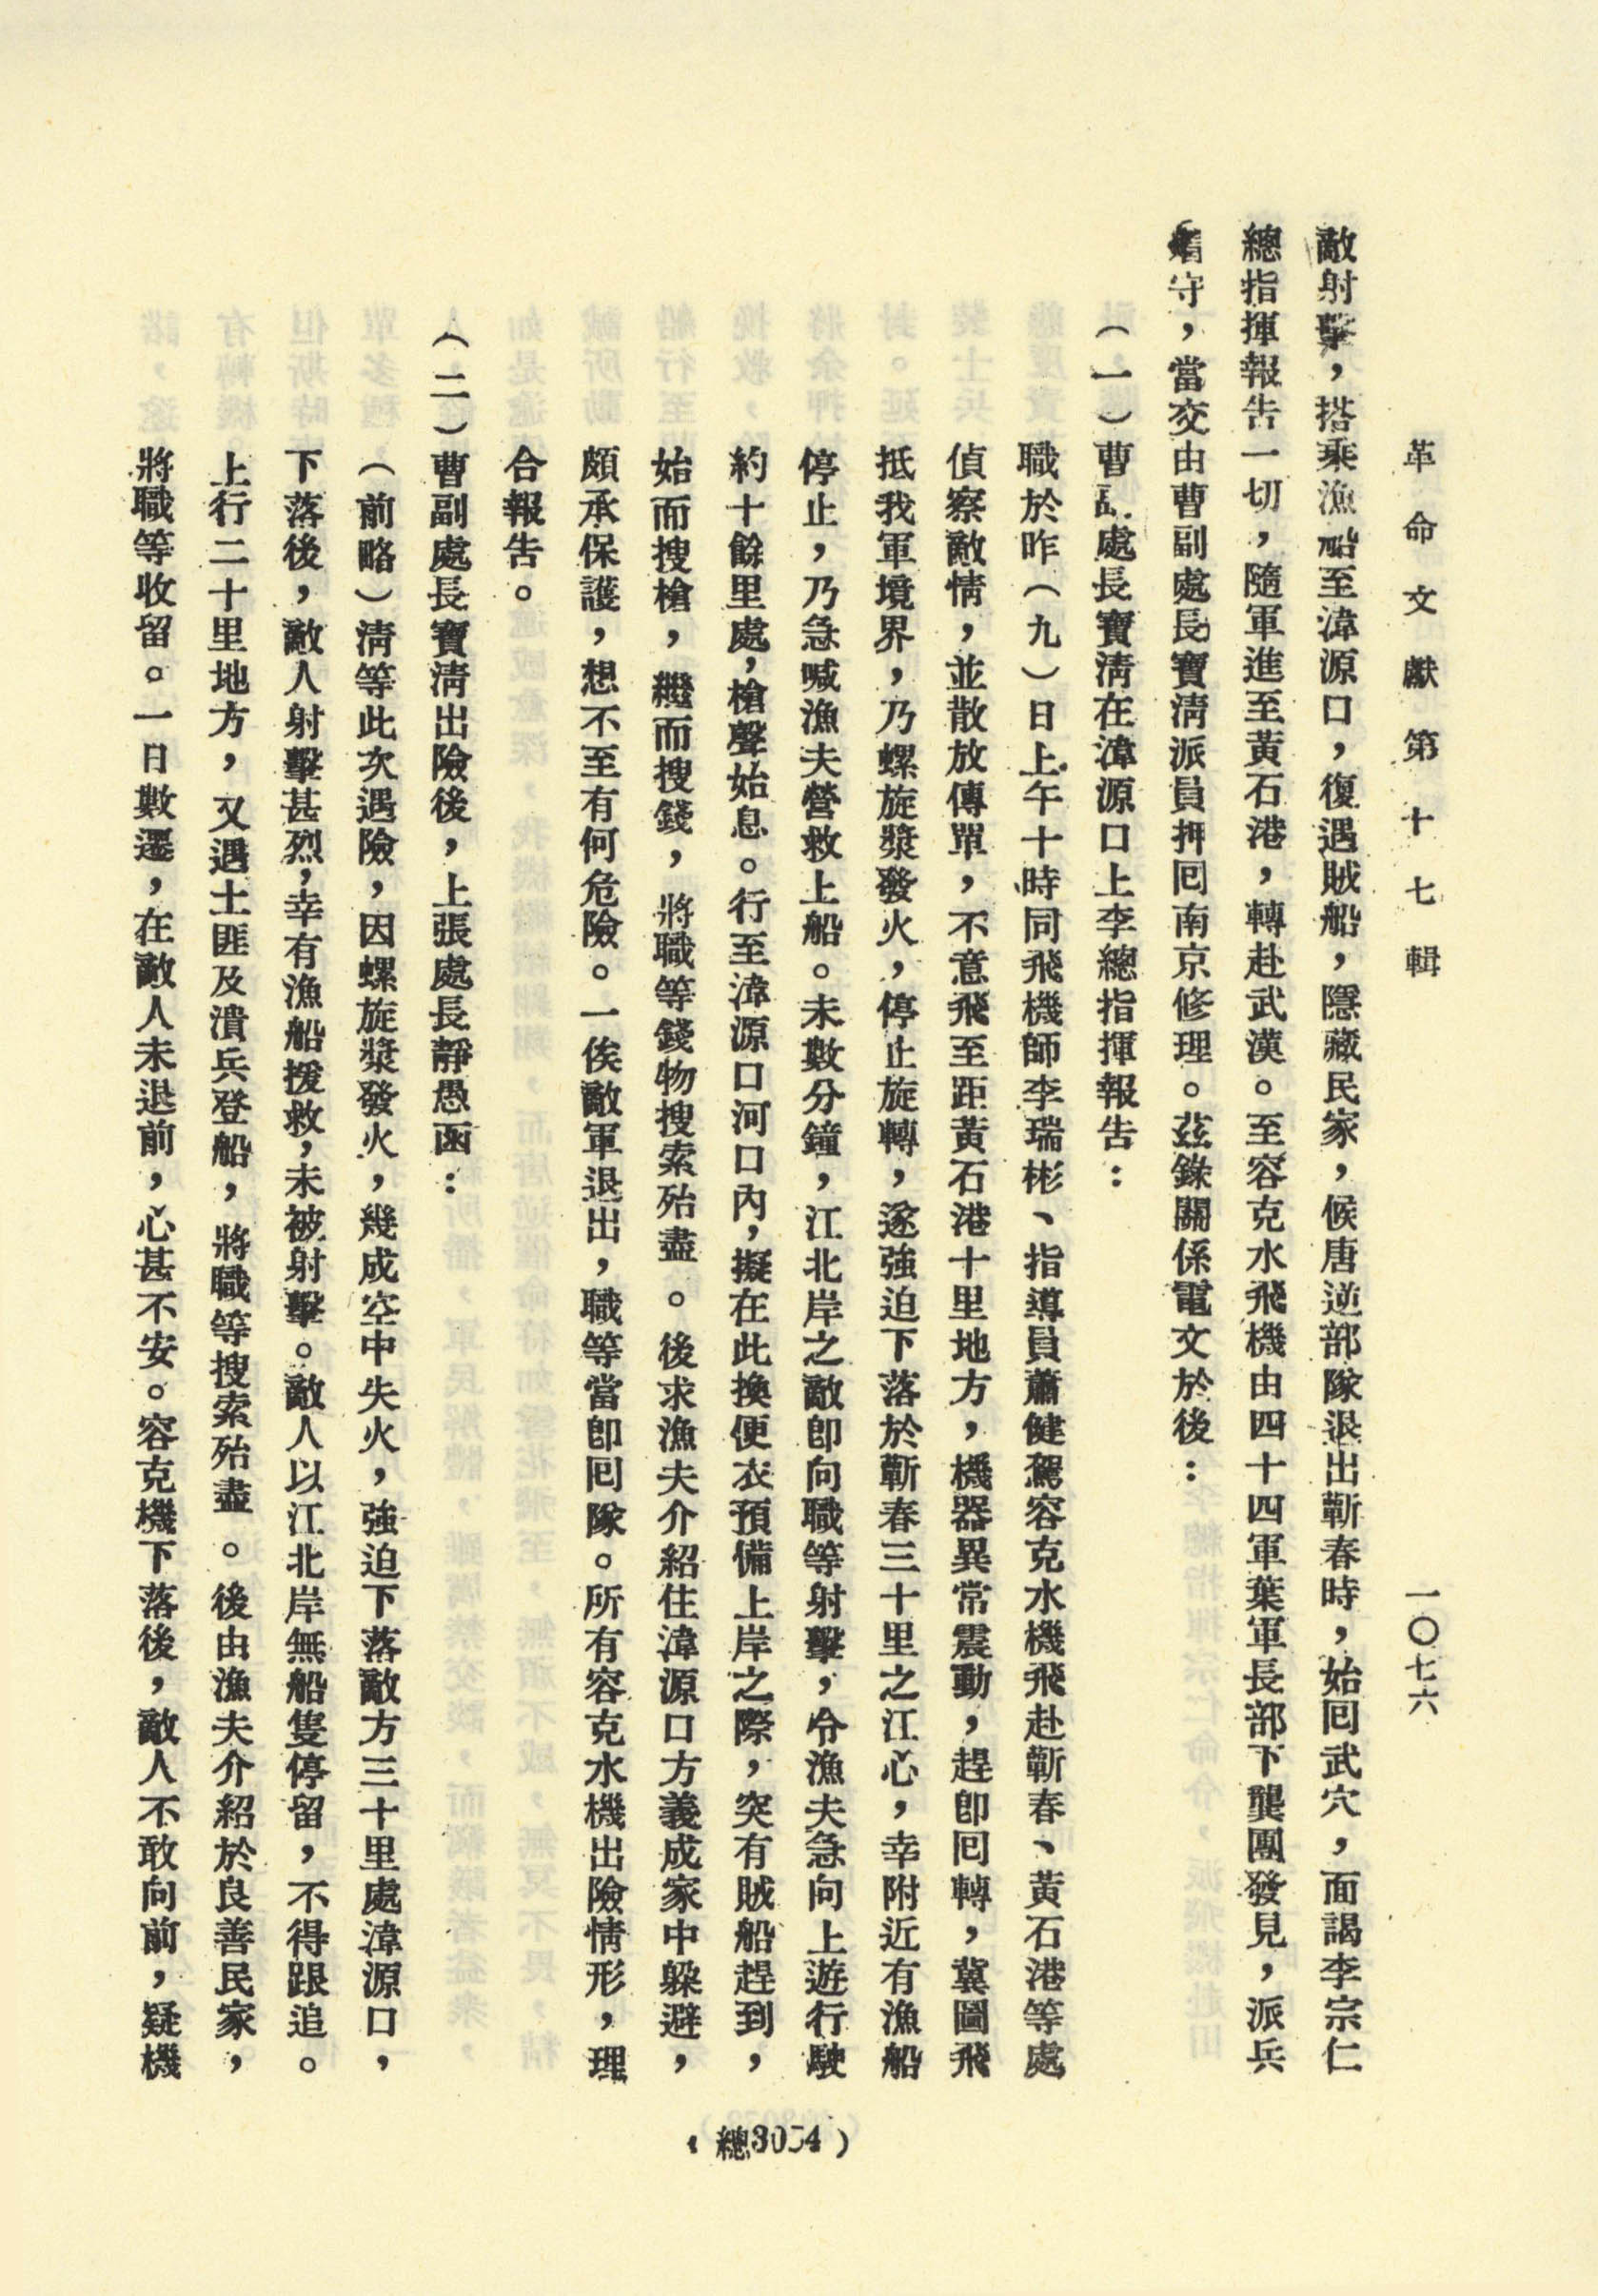 革命文獻第十七輯　一〇七六
敵射擊，搭乘漁船至漳源口，復遇賊船，隱藏民家，候唐逆部隊退出蘄春時，始回武穴，面謁李宗仁
總指揮報告一切，隨軍進至黃石港，轉赴武漢。至容克水飛機由四十四軍葉軍長部下龔團發見，派兵
守，當交由曹副處長寶清派員押回南京修理。茲錄關係電文於後：
（一）曹副處長寶清在漳源口上李總指揮報告：
職於昨（九）日上午十時同飛機師李瑞彬、指導員蕭健駕容克水機飛赴蘄春、黃石港等處
偵察敵情，並散放傳單，不意飛至距黃石港十里地方，機器異常震動，趕卽回轉，冀圖飛
抵我軍境界，乃螺旋槳發火，停止旋轉，遂強迫下落於蘄春三十里之江心，幸附近有漁船
停止，乃急喊漁夫營救上船。未數分鐘，江北岸之敵卽向職等射擊，令漁夫急向上遊行駛
約十餘里處，槍聲始息。行至漳源口河口內，擬在此換便衣預備上岸之際，突有賊船趕到，
始而搜槍，繼而搜錢，將職等錢物搜索殆盡。後求漁夫介紹住漳源口方義成家中躲避，
頗承保護，想不至有何危險。一俟敵軍退出，職等當卽回隊。所有容克水機出險情形，理
合報告。
（二）曹副處長寶清出險後，上張處長靜愚函：
（前略）清等此次遇險，因螺旋槳發火，幾成空中失火，強迫下落敵方三十里處漳源口，
下落後，敵人射擊甚烈，幸有漁船援救，未被射擊。敵人以江北岸無船隻停留，不得跟追。
上行二十里地方，又遇土匪及潰兵登船，將職等搜索殆盡。後由漁夫介紹於良善民家，
將職等收留。一日數遷，在敵人未退前，心甚不安。容克機下落後，敵人不敢向前，疑機
（總3054）